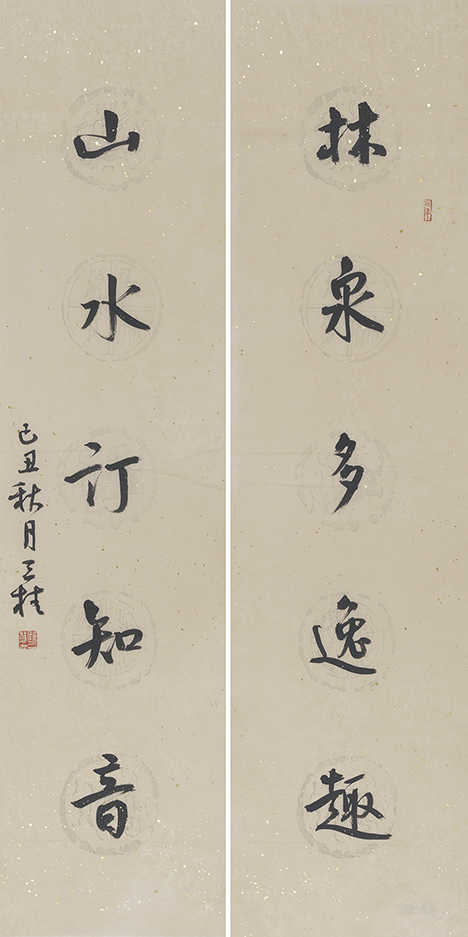 林泉多逸趣
山水订知音
己丑秋月三桂